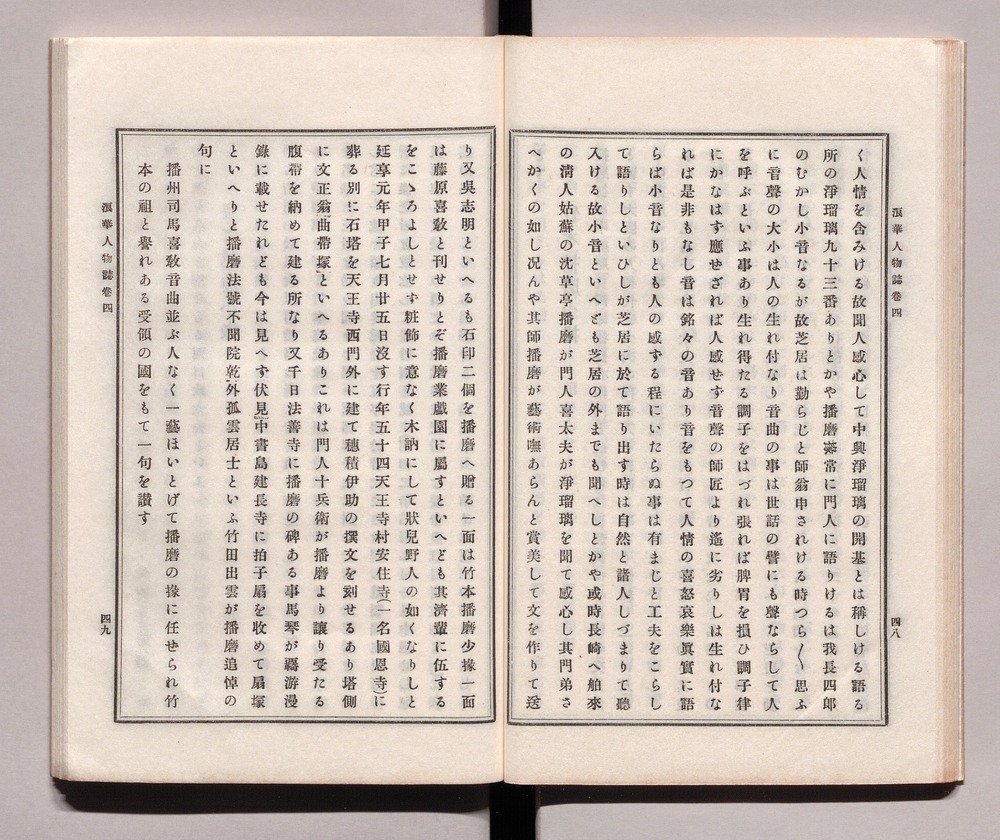 浪華人物誌卷四
四八
く人情を含みける故聞人感心して中興淨瑠璃の開基とは稱しける語る
所の淨瑠璃九十三番ありとかや播磨掾常に門人に語りけるは我長四郎
のむかし小音なるが故芝居は勤らじと師翁申されける時つら〱思ふ
に音聲の大小は人の生れ付なり音曲の事は世話の譬にも聲ならして人
を呼ぶといふ事あり生れ得たる調子をはづれ張れば脾胃を損ひ調子律
にかなはす應せざれば人感せす音聲の師匠より遙に劣りしは生れ付な
れば是非もなし音は銘々の音あり音をもつて人情の喜怒哀樂眞實に語
らば小音なりとも人の感する程にいたらぬ事は有まじと工夫をこらし
て語りしといひしが芝居に於て語り出す時は自然と諸人しづまりて聽
入ける故小音といへども芝居の外までも聞へしとかや或時長崎へ舶來
の淸人姑蘇の沈草亭播磨が門人喜太夫が淨瑠璃を聞て感心し其門弟さ
へかくの如し况んや其師播磨が藝術嘸あらんと賞美して文を作りて送
り又吳志明といへるも石印二個を播磨へ贈る一面は竹本播磨少掾一面
は藤原喜敎と刊せりとぞ播磨業戲園に屬すといへども其濟輩に伍する
をこゝろよしとせす粧飾に意なく木訥にして狀兒野人の如くなりしと
延享元年甲子七月廿五日沒す行年五十四天王寺村安住寺(一名國恩寺)に
葬る別に石塔を天王寺西門外に建て穗積伊助の撰文を刻せるあり塔側
に文正翁「曲帶塚」といへるありこれは門人十兵衛が播磨より讓り受たる
腹帶を納めて建る所なり又千日法善寺に播磨の碑ある事馬琴が羇游漫
錄に載せたれども今は見へす伏見中書島建長寺に拍子扇を收めて扇塚
といへりと播磨法號不聞院乾外孤雲居士といふ竹田出雲が播磨追悼の
句に
播州司馬喜敎音曲並ぶ人なく一藝ほいとげて播磨の掾に任せられ竹
本の祖と譽れある受領の國をもて一句を讃す
浪華人物誌卷四
四九